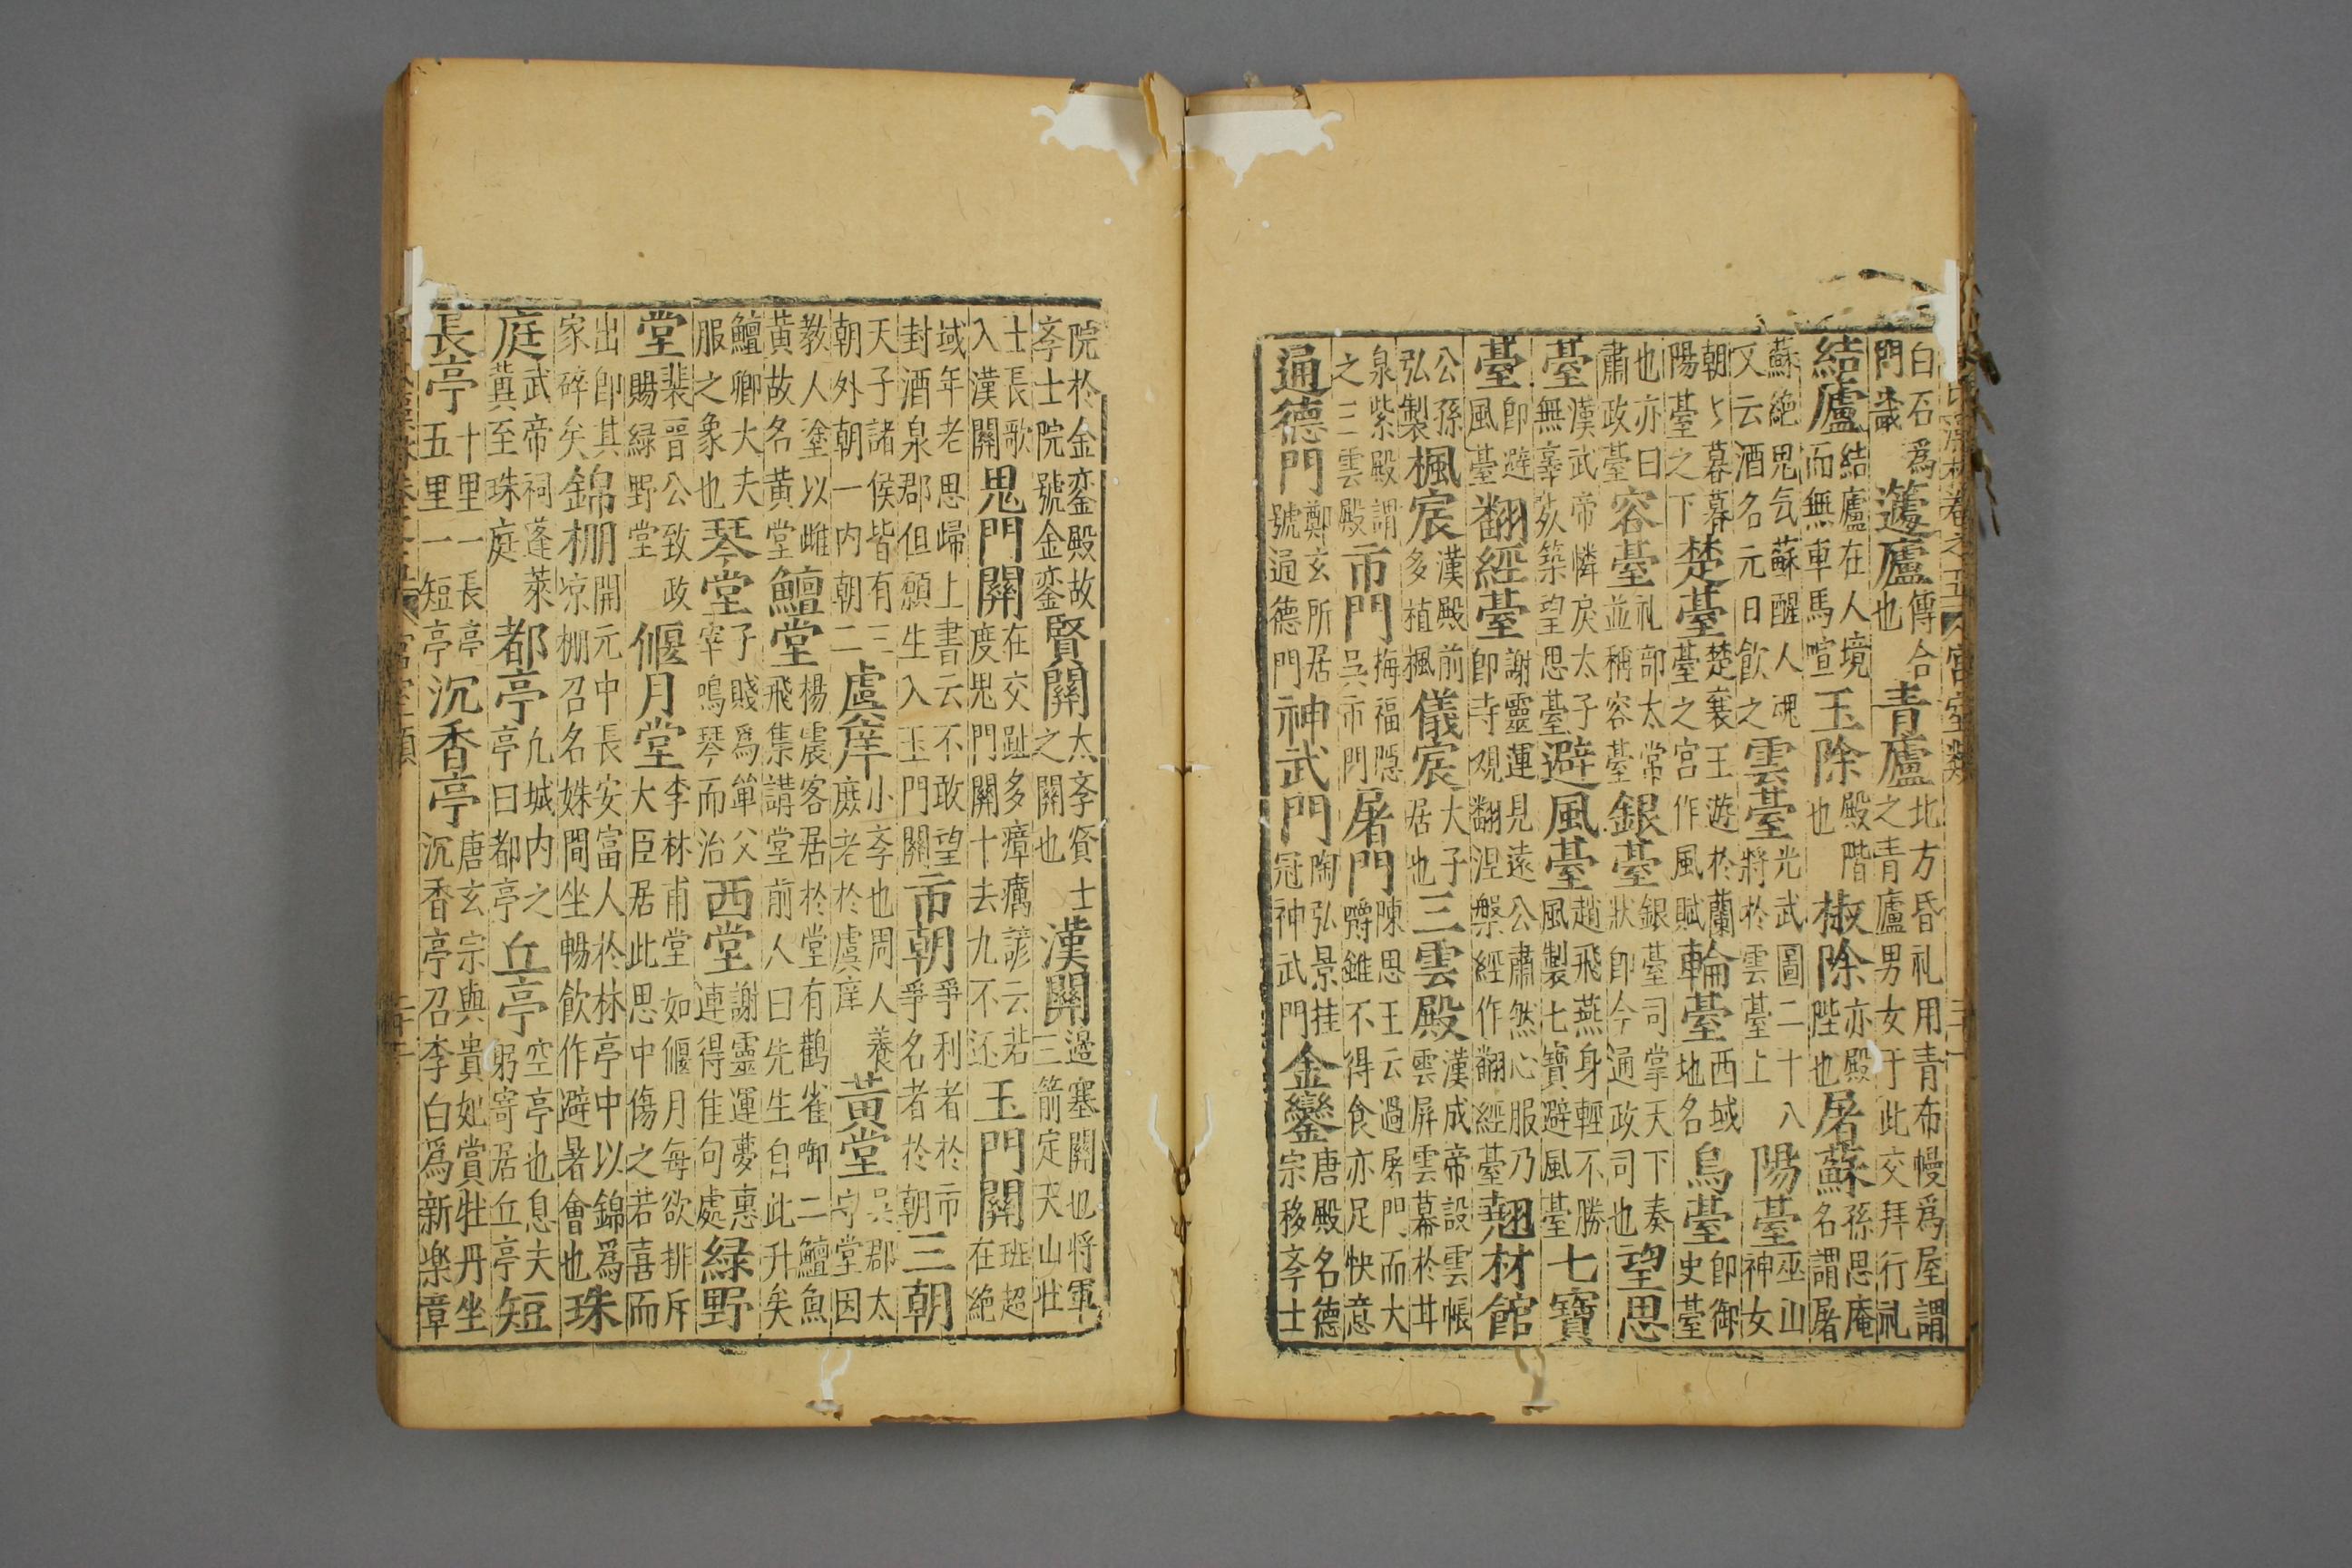 卷之五 宮室類
白石爲門歲蘧廬傳合也青廬北方昏礼用青布幔爲屋謂之青廬男女于此交拜行礼
結廬結廬在人境而無車馬喧玉除殿階也椒除亦殿陛也屠蘇孫思庵名謂屠
蘇絶鬼气蘇醒人魂又云酒名元日飲之雲臺光武圖二十八將於雲臺上陽臺巫山神女
朝〻暮暮陽臺之下楚臺楚襄王遊於蘭臺之宮作風賦輪臺西域地名烏臺即御史臺
也亦曰肅政臺容臺礼部太常並稱容臺銀臺銀臺司掌天下奏狀即今通政司也望思
臺漢武帝憐戾太子無辜築望思臺避風臺趙飛燕身輕不勝風製七寶避風臺七寶
臺即避風臺翻經臺謝靈運見遠公肅然心服乃即寺观翻涅槃經作翻經臺翹材館
公孫弘製楓宸漢殿前多植楓儀宸大子居也三雲殿漢成帝設雲帳雲屏雲幕於甘
泉紫殿謂之三雲殿市門梅福隠吳市門屠門陳思王云過屠門而大嚼雖不得食亦足快意
通德門鄭玄所居號通德門神武門陶弘景挂冠神武門金鑾唐殿名德宗移斈士
院於金鑾殿故斈士院號金鑾賢關太斈賢士之關也漢關邊塞關也将軍三箭定天山壮
士長歌入漢關鬼門關在交趾多瘴癘諺云若度鬼門關十去九不还玉門關班超在絶
域年老思歸上書云不敢望封酒泉郡但願生入玉門關市朝爭利者於市爭名者於朝三朝
天子諸侯皆有三朝外朝一内朝二虞庠小斈也周人養庶老於虞庠黃堂吳郡太守堂因
教人塗以雌黃故名黃堂鱣堂楊震客居於堂有鸛雀啣二鱣魚飛集講堂前人曰先生自此升矣
鱣卿大夫服之象也琴堂子賤爲單父宰鳴琴而治西堂謝靈運夢惠連得佳句處緑野
堂裴晋公致政賜緑野堂偃月堂李林甫堂如偃月每欲排斥大臣居此思中傷之若喜而
出即其家碎矣錦棚開元中長安富人於林亭中以錦爲凉棚召名姝間坐暢飲作避暑會也珠
庭武帝祠蓬萊蓂至珠庭都亭九城内之亭曰都亭丘亭空亭也息夫躬寄居丘亭短
長亭十里一長亭五里一短亭沉香亭唐玄宗與貴妃賞牡丹坐沉香亭召李白爲新楽章